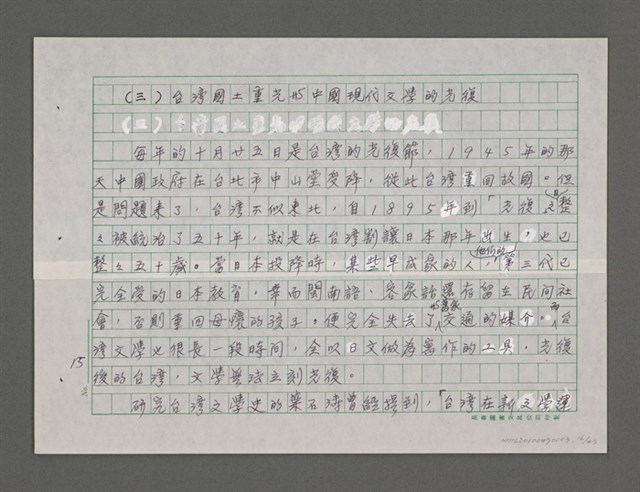 (三)台湾國土重光與中國現代文學的光復
每年的十月廿五日是台湾的光復節,1945年的那
天中國政府在台北市中山堂受降,從此台湾重回故國。但
是問題來了,台湾不似東北,自1895年到「光復」整
整被統治了五十年,就是在台湾割讓日本那年出生,也已
整整五十歲。當日本投降時,某些早成家的人,他們的第三代已
完全受的日本教育,幸而閩南語、客家話還存留在民間社
會,否則重回母懷的孩子。便完全失去了與舊家交通的媒介。而台
湾文學也很長一段時間,全以日文做為寫作的工具,光復
後的台湾,文學無法立刻光復。
研究台湾文學史的葉石涛曾經提到,「台湾在新文學運
15
No.